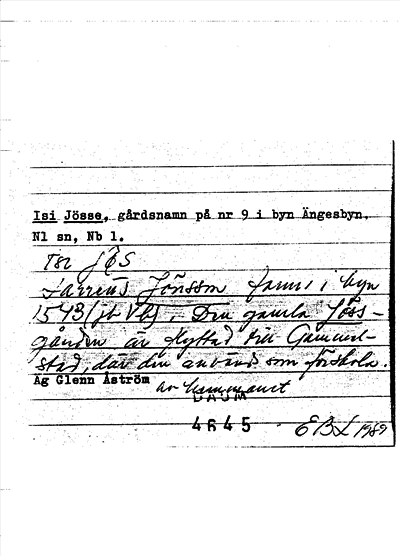 Isi Jösse, gårdsnamn på nr 9 i byn Ängesbyn,
Nl sn, Nb l.
Jönsson fanns i byn
1543 (jb Vhb). Den gamla Jöss-
gården är flyttad till Gammel-
stad, där den används som förskola.
Ag Glenn Åström av kommunen
DAUM
4645 EBL 1989